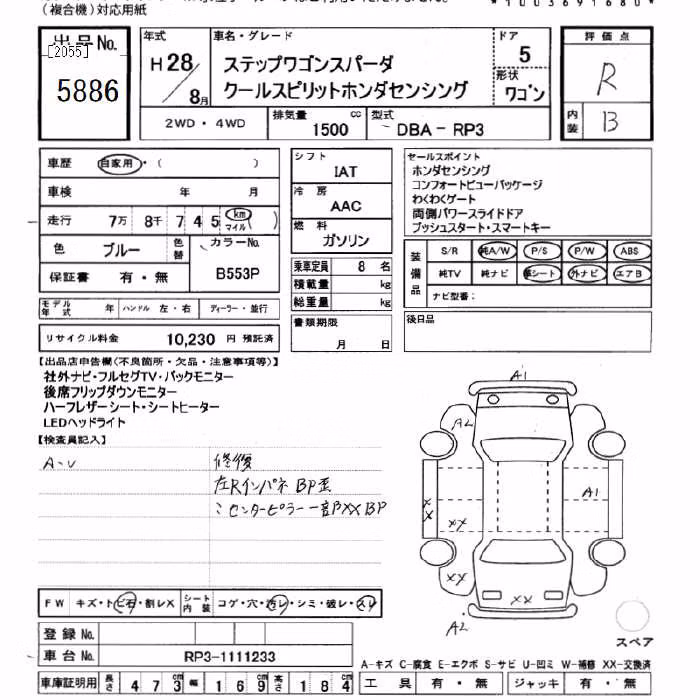 (複合機)対応用紙
*1003691680*
出品No.
[2055]
5886
年式
H28/8月
車名・グレード
ステップワゴンスパーダ
クールスピリットホンダセンシング
ドア
5
形状
ワゴン
評価点
R
内装
B
2WD・4WD
排気量
1500 cc
型式
DBA-RP3
車歴
自家用・( )
車検 年 月
走行 7万 8千 7 4 5 km マイル ( )
色 ブルー
色替
カラーNo.
B553P
保証書 有・無
モデル年式 年 ハンドル 左・右 ディーラー・並行
リサイクル料金 10,230 円 預託済
シフト
IAT
冷房
AAC
燃料
ガソリン
乗車定員 8 名
積載量 kg
総重量 kg
書類期限
月 日
セールスポイント
ホンダセンシング
コンフォートビューパッケージ
わくわくゲート
両側パワースライドドア
プッシュスタート・スマートキー
装備品
S/R 純A/W P/S P/W ABS
純TV 純ナビ 革シート 外ナビ エアB
ナビ型番:
後日品
【出品店申告欄(不良箇所・欠品・注意事項等)】
社外ナビ・フルセグTV・バックモニター
後席フリップダウンモニター
ハーフレザーシート・シートヒーター
LEDヘッドライト
【検査員記入】
A-U
修復
左Rインパネ BP歪
〃センターピラー一部XX BP
A1
A2
A1
XX
XX
XX
XX
A2
スペア
FW キズ・トビ石・割レX
シート内装 コゲ・穴・汚レ・シミ・破レ・スレ
登録No.
車台No. RP3-1111233
車庫証明用 長さ 473cm 幅 169cm 高さ 184cm
A-キズ C-腐食 E-エクボ S-サビ U-凹ミ W-補修 XX-交換済
工具 有・無 ジャッキ 有・無